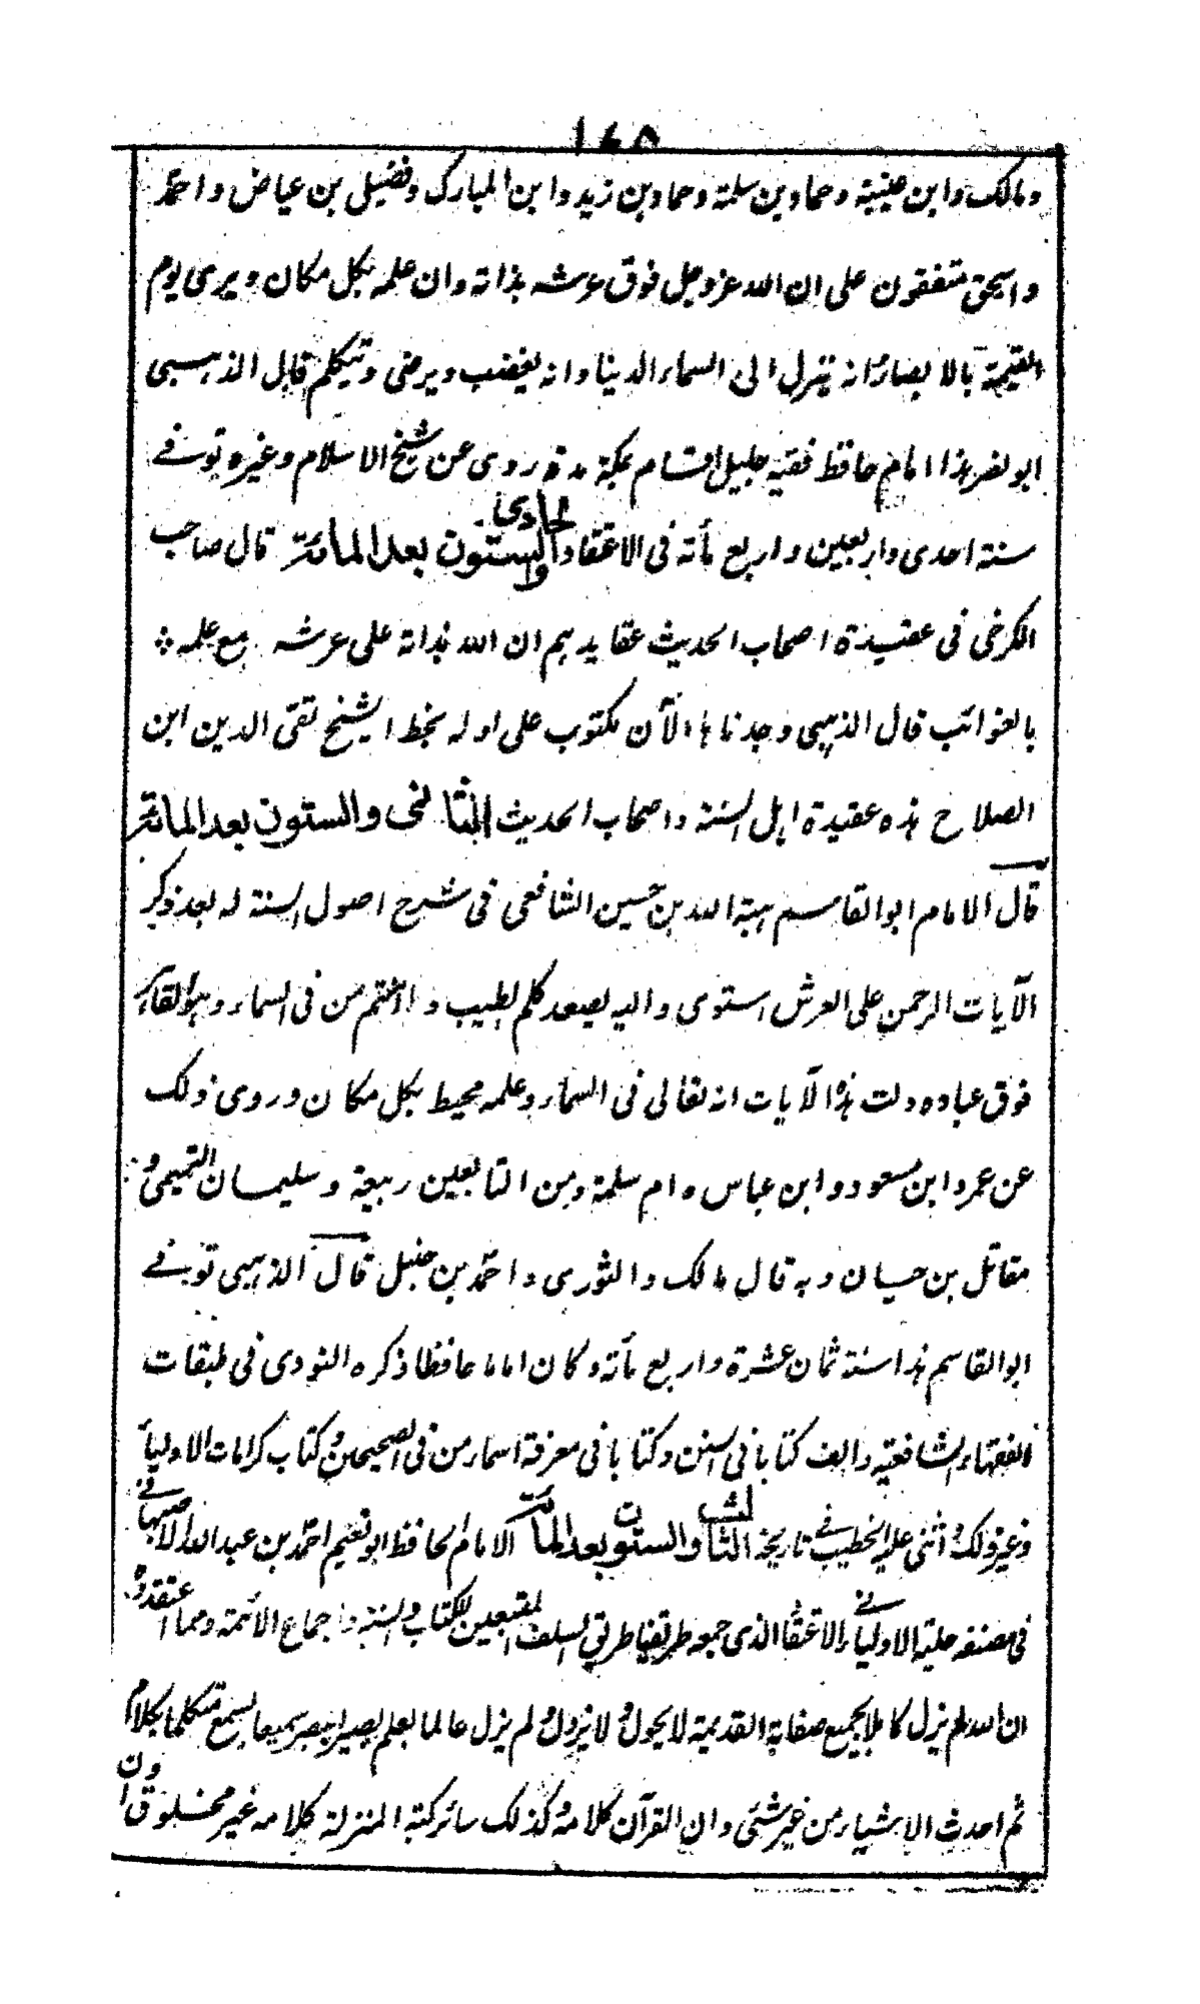 ١٦٥
ومالك وابن عيينة وحماد بن سلمة وحماد بن زيد وابن المبارك وفضيل بن عياض واحمد
واسحق متفقون على ان الله عز وجل فوق عرشه بذاته وان علمه بكل مكان ويرى يوم
القيمة بالابصار وانه ينزل الى السماء الدنيا وانه يغضب ويرضى ويتكلم قال الذهبى
ابو نصر هذا امام حافظ فقيه جليل اقام بمكة مدة روى عن شيخ الاسلام وغيره توفے
سنة احدى واربعين واربع مأته فى الاعتقاد الحادى والستون بعد المائة قال صاحب
الكرخى فى عقيدة اصحاب الحديث عقايدهم ان الله بذاته على عرشه مع علمه
بالغوائب قال الذهبى وجدناها الآن مكتوب على اوله بخط الشيخ تقى الدين ابن
الصلاح هذه عقيدة اهل السنة واصحاب الحديث الثانى والستون بعد المائة
قال الامام ابو القاسم هبة الله بن حسين الشافعى فى شرح اصول السنة له بعد ذكر
الآيات الرحمن على العرش استوى واليه يصعد كلم الطيب و اامنتم من فى السماء وهو القاهر
فوق عباده دلت هذه الآيات انه تعالى فى السماء وعلمه محيط بكل مكان وروى ذلك
عن عمر وابن مسعود وابن عباس وام سلمة ومن التابعين ربيعة وسليمان التيمى و
مقاتل بن حيان وبه قال مالك والثورى واحمد بن حنبل قال الذهبى توفے
ابو القاسم هذا سنة ثمان عشرة واربع مأته وكان اماما حافظا ذكره النووى فى طبقات
الفقهاء الشافعية والف كتابا فى السنن وكتابا فى معرفة اسماء من فى الصحيحين وكتاب كرامات الاولياء
وغير ذلك واثنى عليه الخطيب فے تاريخه الثالث والستون بعد المائة الامام الحافظ ابو نعيم احمد بن عبد الله الاصبهانے
فى مصنفه حلية الاولياء فے الاعتقاد الذى جمعه طريقنا طريق السلف المتبعين للكتاب والسنة واجماع الائمة ومما اعتقدوه
ان الله لم يزل كاملا بجميع صفاته القديمة لا يحول ولا يزول ولم يزل عالما بعلم بصيرا ببصر سميعا بسمع متكلما بكلام
ثم احدث الاشياء من غير شئى وان القرآن كلامه وكذلك سائر كتبه المنزلة كلامه غير مخلوق وان